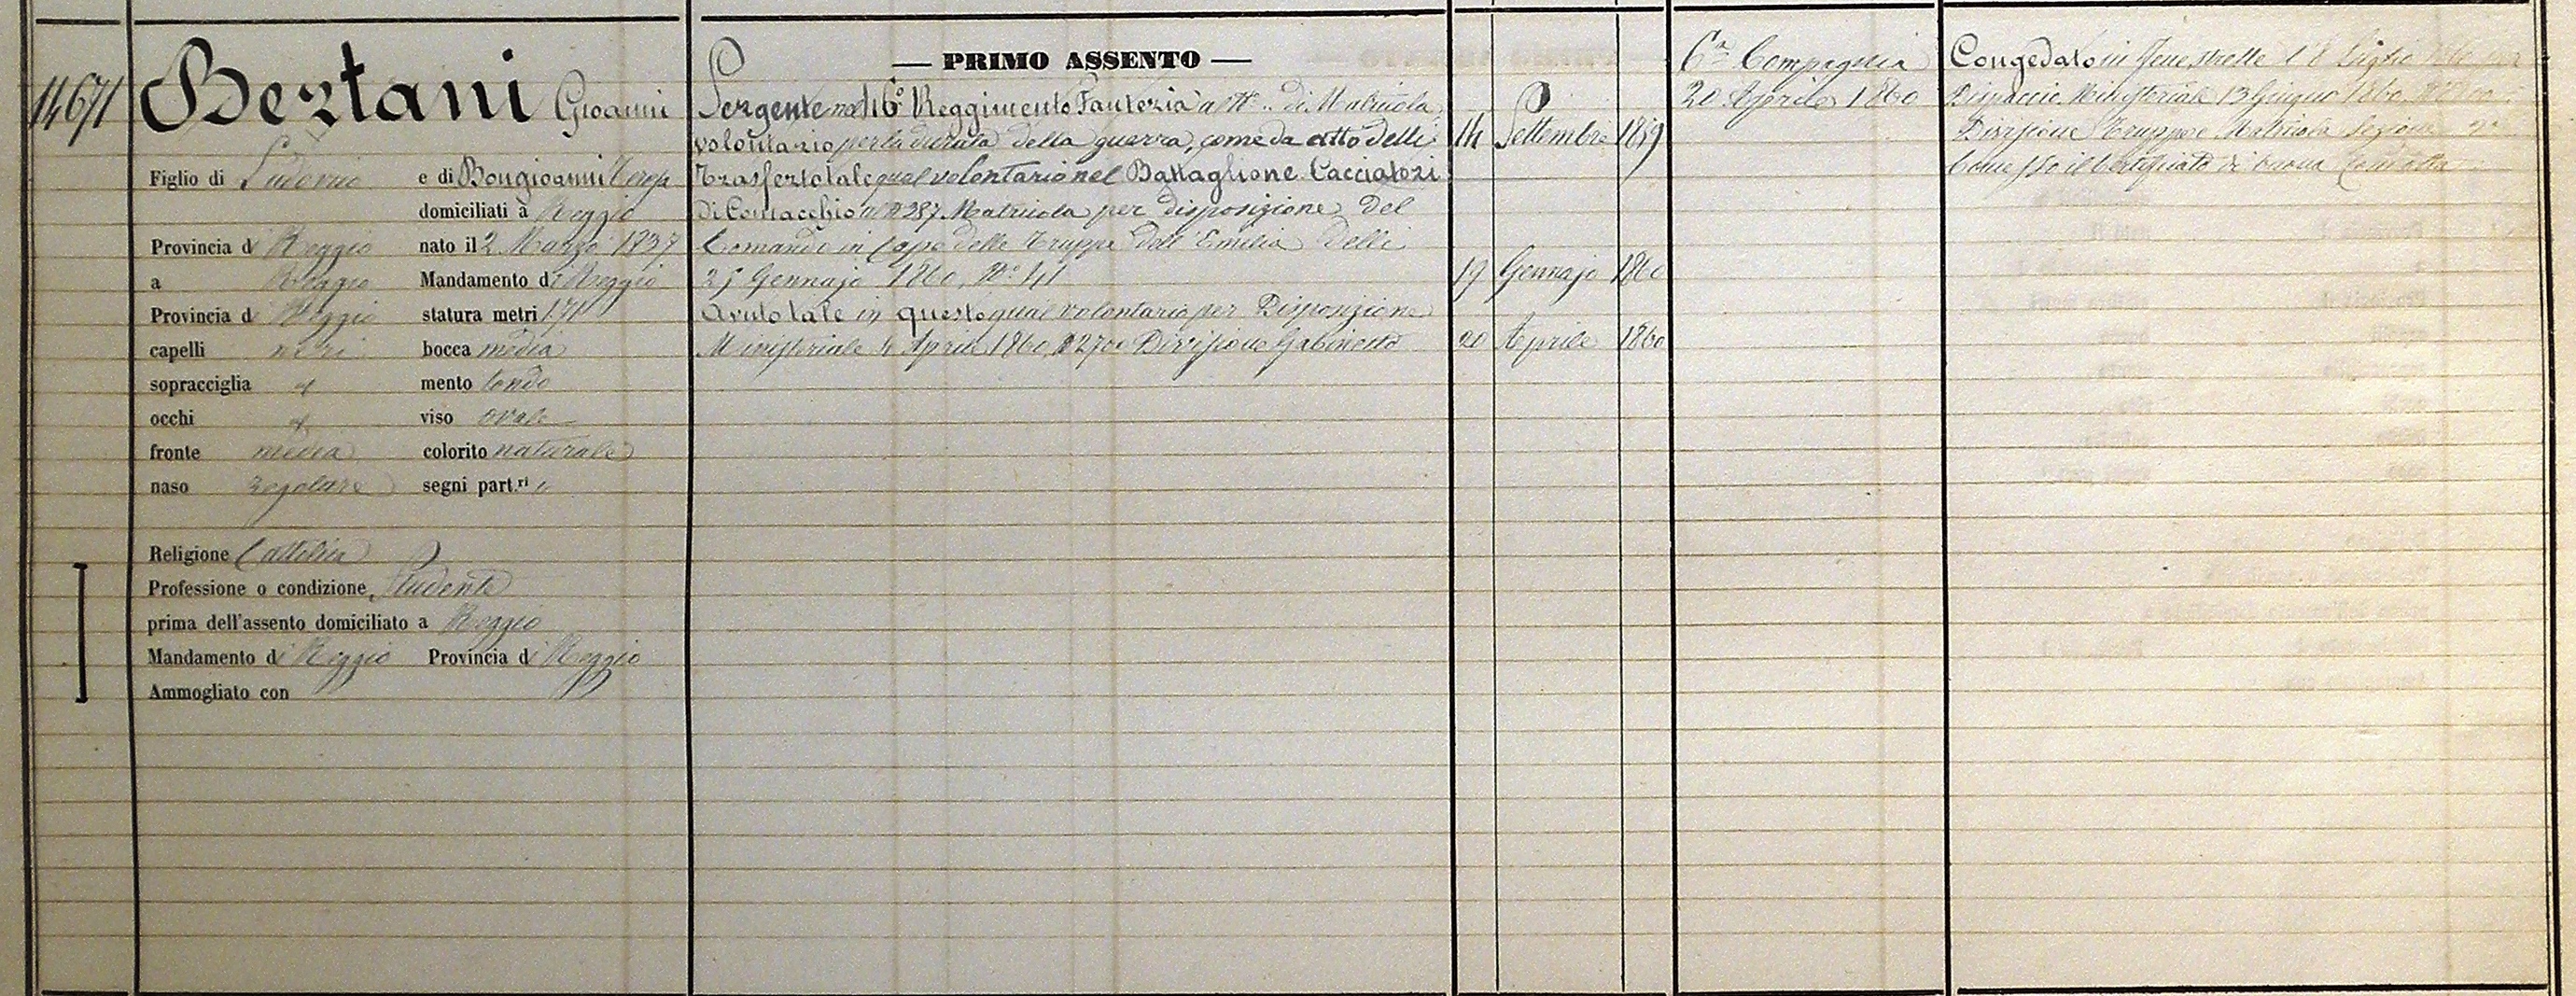 14671
Bertani Gioanni
Figlio di Ludovico e di Bongioanni Teresa
domiciliati a Reggio
Provincia di Reggio nato il 2 Marzo 1837
a Reggio Mandamento di Reggio
Provincia di Reggio statura metri 1.71
capelli neri bocca media
sopracciglia id mento tondo
occhi id viso ovale
fronte media colorito naturale
naso regolare segni part.ri
Religione Cattolica
Professione o condizione Studente
prima dell'assento domiciliato a Reggio
Mandamento di Reggio Provincia di Reggio
Ammogliato con
— PRIMO ASSENTO —
Sergente nel 46° Reggimento Fanteria al N° .. di Matricola
volontario per la durata della guerra, come da atto delli 14 Settembre 1859
Trasferto tale qual volontario nel Battaglione Cacciatori
di Comacchio al N 387 Matricola per disposizione del
Comando in Capo delle Truppe dell'Emilia delli
25 Gennajo 1860, N° 41 19 Gennajo 1860
Avuto tale in questo qual volontario per Disposizione
Ministeriale 4 Aprile 1860 N 2700 Divisione Gabinetto 20 Aprile 1860
6a Compagnia
20 Aprile 1860
Congedato in Fenestrelle l'8 Luglio 1860 per
Dispaccio Ministeriale 13 Giugno 1860
Divisione Truppe Matricola Sezione 2a
Concesso il Certificato di buona Condotta